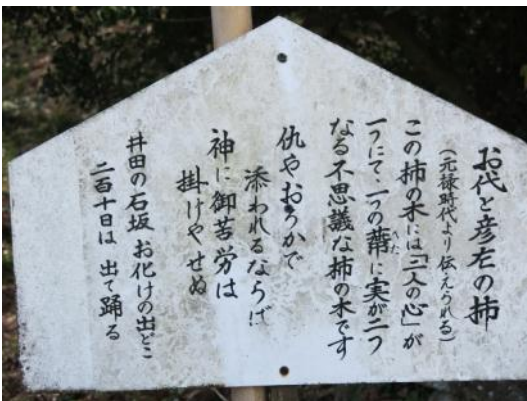 お代と彦左の柿
(元禄時代より伝えられる)
この柿の木には「二人の心」が
一つにて、一つの蔕に実が二つ
へた
なる不思議な柿の木です
仇やおろかで
添われるならば
神に御苦労は
掛けやせぬ
井田の石坂 お化けの出どこ
二百十日は 出て踊る